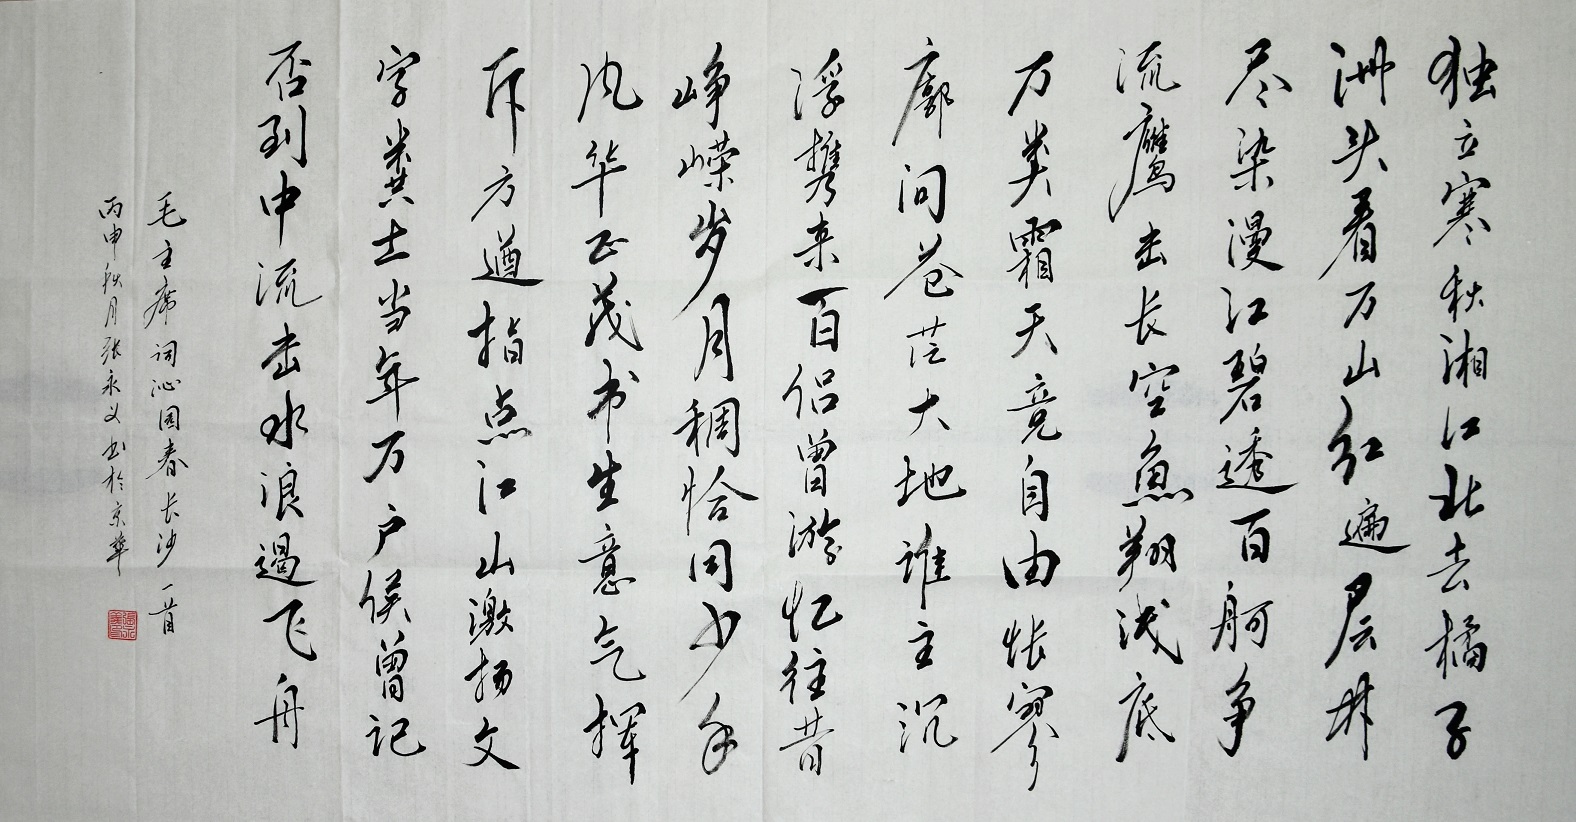 独立寒秋湘江北去橘子
洲头看万山红遍层林
尽染漫江碧透百舸争
流鹰击长空鱼翔浅底
万类霜天竞自由怅寥
廓问苍茫大地谁主沉
浮携来百侣曾游忆往昔
峥嵘岁月稠恰同少年
风华正茂书生意气挥
斥方遒指点江山激扬文
字粪土当年万户侯曾记
否到中流击水浪遏飞舟
毛主席词沁园春长沙一首
丙申秋月张永义书于京华